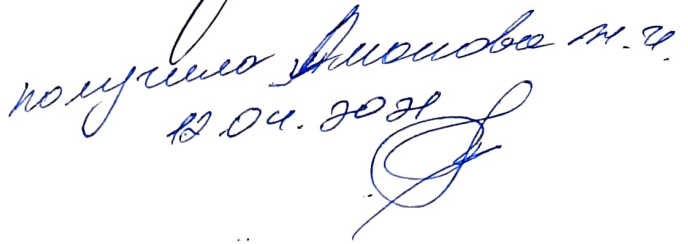 получила Амонова М.Ч.
12.04.2021